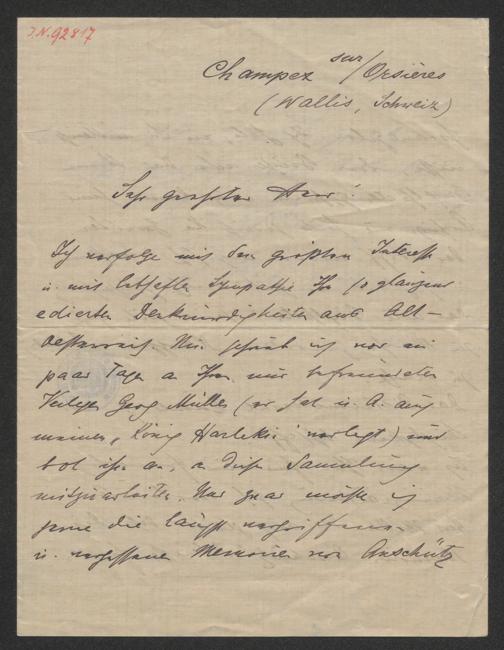 J.N. 92817
Champex sur/Orsières
(Wallis, Schweiz)
Sehr geehrter Herr!
Ich verfolge mit dem größten Interesse
u. mit lebhafter Sympathie Ihre so glänzend
edierten Denkwürdigkeiten aus Alt-
Oesterreich. Nun schrieb ich vor ein
paar Tagen an Ihren mir befreundeten
Verleger Georg Müller (er hat u. A. auch
meinen „König Harlekin" verlegt) und
bot ihm an, an dieser Sammlung
mitzuarbeiten. Und zwar möchte ich
gerne die längst vergriffenen
u. vergessenen Memoiren von Anschütz